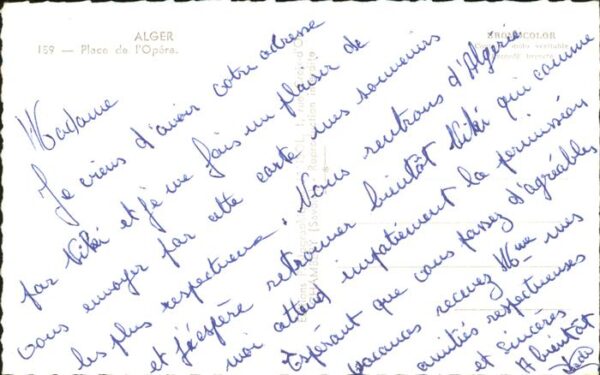 ALGER
159 — Place de l'Opéra.
KROMICOLOR
Madame
Je viens d'avoir votre adresse
par Kiki et je me fais un plaisir de
vous envoyer par cette carte mes souvenirs
les plus respectueux. Nous rentrons d'Algérie
et j'éspère retrouver bientôt Kiki qui comme
moi attend impatiement la permission
Espérant que vous passez d'agréables
vacances recevez Mme mes
amitiés respectueuses
et sincères
A bientôt
CHAMBÉRY